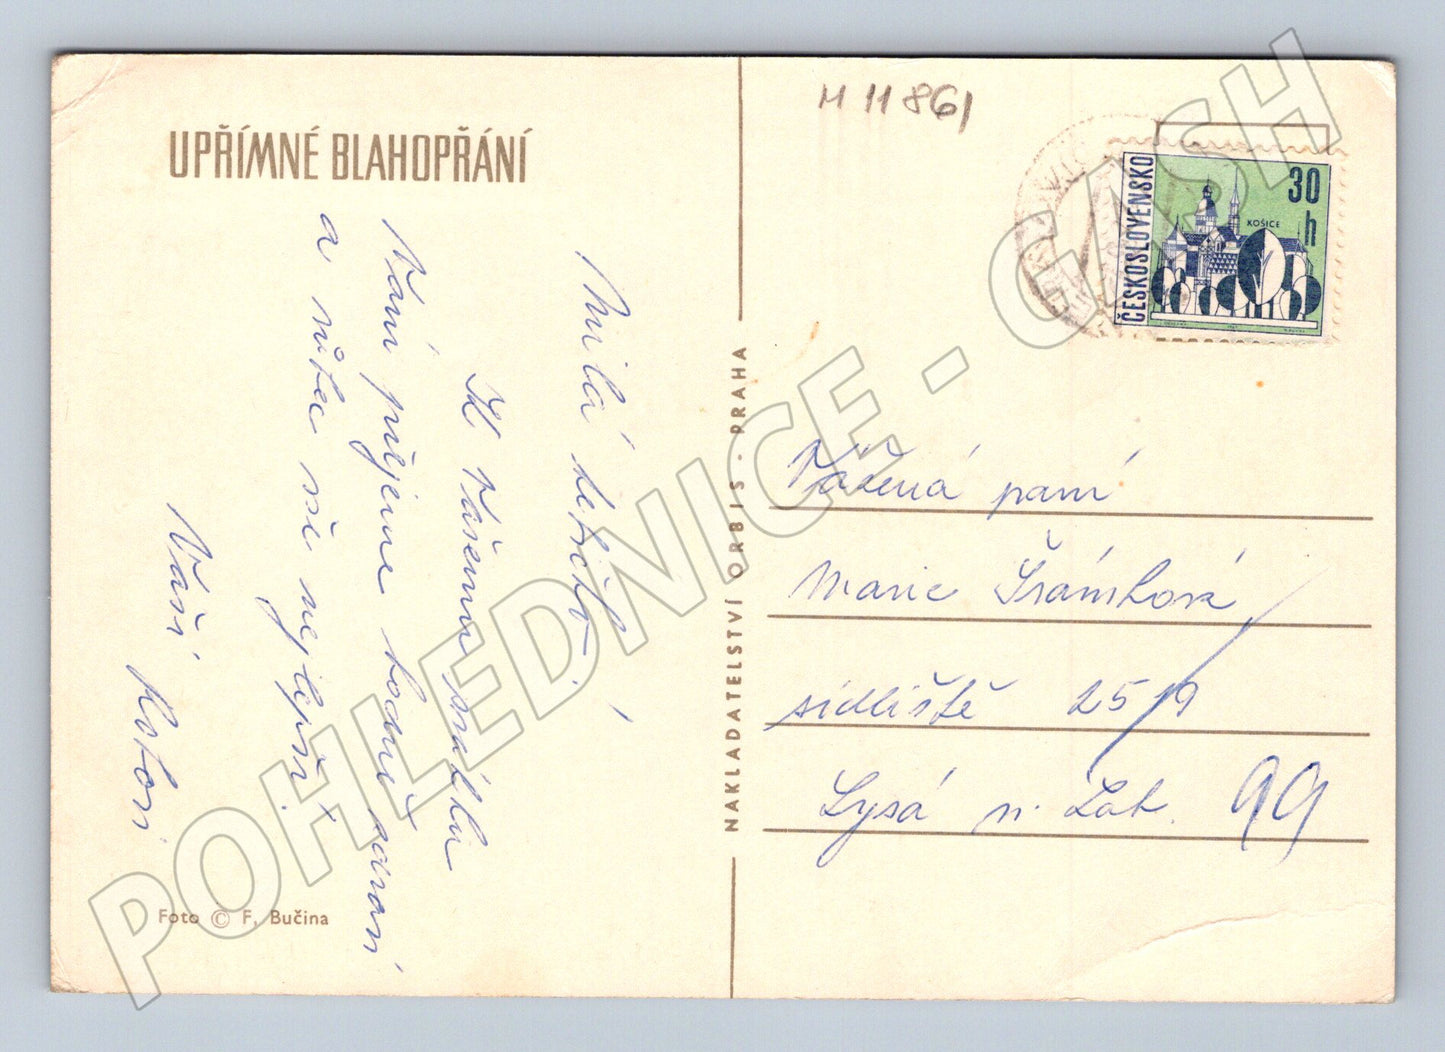 UPŘÍMNÉ BLAHOPŘÁNÍ
Milá tetičko!
K Vašemu svátku
Vám přejeme hodně zdraví
a všeho vše nejlepší.
Vaši
Foto © F. Bučina
NAKLADATELSTVÍ ORBIS · PRAHA
M 11 861
ČESKOSLOVENSKO
30 h
KOŠICE
Vážená paní
Marie Šrámková
sidliště 25/9
Lysá n. Lab. 99
POHLEDNICE - GASH